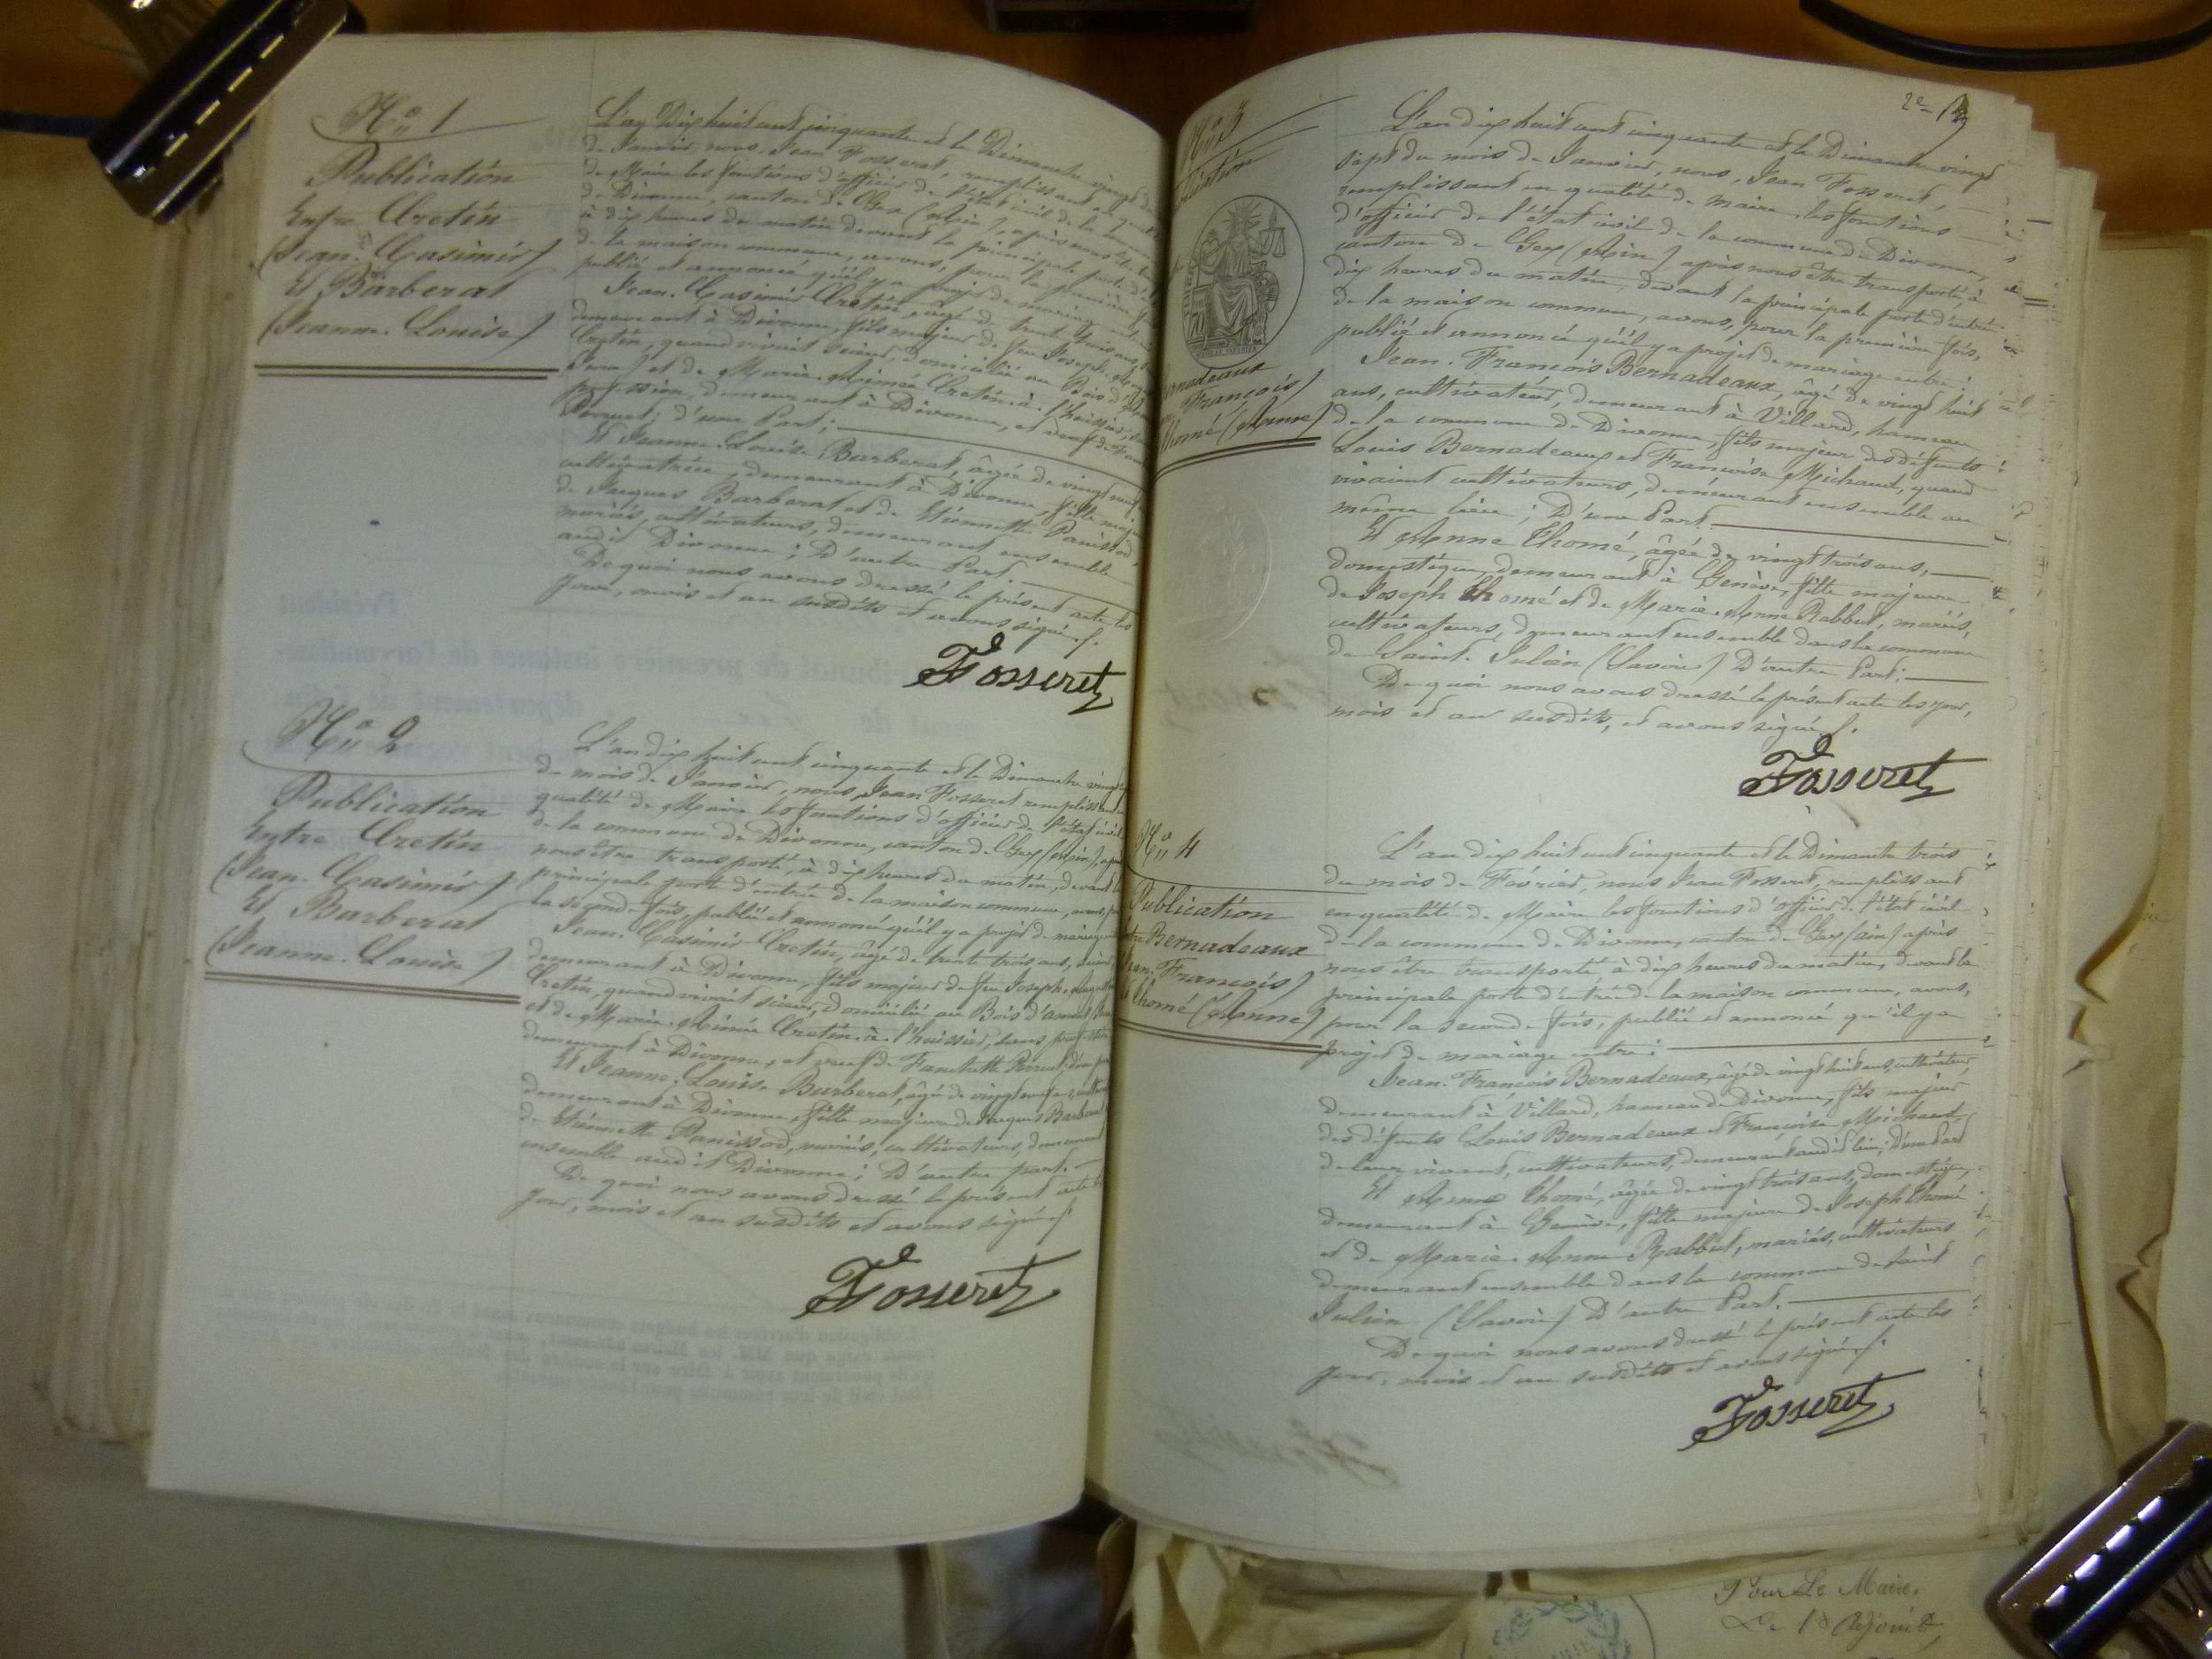 Nº 1
Publication
Entre Cretin
(Jean. Casimir)
Et Barberat
(Jeanne. Louise)
L'an Dix huit cent cinquante et le Dimanche vingt
de Janvier, nous, Jean Fosseret, remplissant en
de Maire les fonctions d'officier de l'état civil de la
de Divonne, canton de Gex (Ain), après nous être
à dix heures du matin devant la principale porte d'
de la maison commune, avons, pour la première fois
publié et annoncé qu'il y a projet de mariage
Jean. Casimir Cretin, âgé de trente trois ans,
demeurant à Divonne, fils majeur de feu Joseph.
Cretin, quand vivait scieur, domicilié au Bois d'
Jura) et de Marie. Aimée Cretin. à. l'huissier,
profession, demeurant à Divonne, et veuf de
Perruet; d'une Part;
Et Jeanne. Louise Barberat, âgée de vingt
cultivatrice, demeurant à Divonne, fille
de Jacques Barberat et de Etiennette Panissod,
mariés, cultivateurs, demeurant ensemble
audit Divonne; D'autre Part.
De quoi nous avons dressé le présent acte les
jour, mois et an susdits et avons signé./.
Fosseret
Nº 2
Publication
Entre Cretin
(Jean. Casimir)
Et Barberat
(Jeanne. Louise)
L'an dix huit cent cinquante et le Dimanche vingt
du mois de Janvier, nous, Jean Fosseret remplissant
qualité de Maire les fonctions d'officier de l'état civil
de la commune de Divonne, canton de Gex (Ain), après
nous être transporté, à dix heures du matin, devant la
principale porte d'entrée de la maison commune, avons,
la seconde fois, publié et annoncé qu'il y a projet de mariage
Jean. Casimir Cretin, âgé de trente trois ans, scieur
demeurant à Divonne, fils majeur de feu Joseph.
Cretin, quand vivait scieur, domicilié au Bois d'amont
et de Marie. Aimée Cretin. à. l'huissier, sans profession
demeurant à Divonne, et veuf de Fanchette Perruet; d'une part
Et Jeanne. Louise Barberat, âgée de vingt
demeurant à Divonne, fille majeure de Jacques Barberat
de Etiennette Panissod, mariés, cultivateurs, demeurant
ensemble audit Divonne; D'autre part.
De quoi nous avons dressé le présent acte
jour, mois et an susdits et avons signé./.
Fosseret
2e
Nº 3
Publication
Bernadeaux
François)
Thomé (Anne)
L'an dix huit cent cinquante et le Dimanche vingt
sept du mois de Janvier, nous, Jean Fosseret,
remplissant en qualité de maire, les fonctions
d'officier de l'état civil de la commune de Divonne,
canton de Gex (Ain) après nous être transporté, à
dix heures du matin, devant la principale porte d'entrée
de la maison commune, avons, pour la première fois,
publié et annoncé qu'il y a projet de mariage entre:
Jean. François Bernadeaux, âgé de vingt huit
ans, cultivateur, demeurant à Villard, hameau
de la commune de Divonne, fils majeur des défunts
Louis Bernadeaux et Françoise Michaud, quand
vivaient cultivateurs, demeurant ensemble au
même lieu; D'une Part
Et Anne Thomé, âgée de vingt trois ans,
domestique, demeurant à Genève, fille majeure
de Joseph Thomé et de Marie. Anne Rabbut, mariés,
cultivateurs, demeurant ensemble dans la commune
de Saint. Julien (Savoie) D'autre Part;
De quoi nous avons dressé le présent acte les jour,
mois et an susdits, et avons signé./.
Fosseret
Nº 4
Publication
Entre Bernadeaux
Jean. François)
Thomé (Anne)
L'an dix huit cent cinquante et le Dimanche trois
du mois de Février, nous Jean Fosseret, remplissant
en qualité de Maire les fonctions d'officier de l'état civil
de la commune de Divonne, canton de Gex (ain) après
nous être transporté, à dix heures du matin, devant la
principale porte d'entrée de la maison commune, avons,
pour la seconde fois, publié et annoncé qu'il y a
projet de mariage entre:
Jean. François Bernadeaux, âgé de vingt huit ans, cultivateur,
demeurant à Villard, hameau de Divonne, fils majeur
des défunts Louis Bernadeaux et Françoise Michaud,
de leur vivant, cultivateurs, demeurant audit lieu; D'une Part
Et Anne Thomé, âgée de vingt trois ans, domestique,
demeurant à Genève, fille majeure de Joseph Thomé
et de Marie. Anne Rabbut, mariés, cultivateurs
demeurant ensemble dans la commune de Saint
Julien (Savoie) D'autre Part.
De quoi nous avons dressé le présent acte les
jour, mois et an susdits et avons signé./.
Fosseret
Pour Le Maire,
Adjoint,